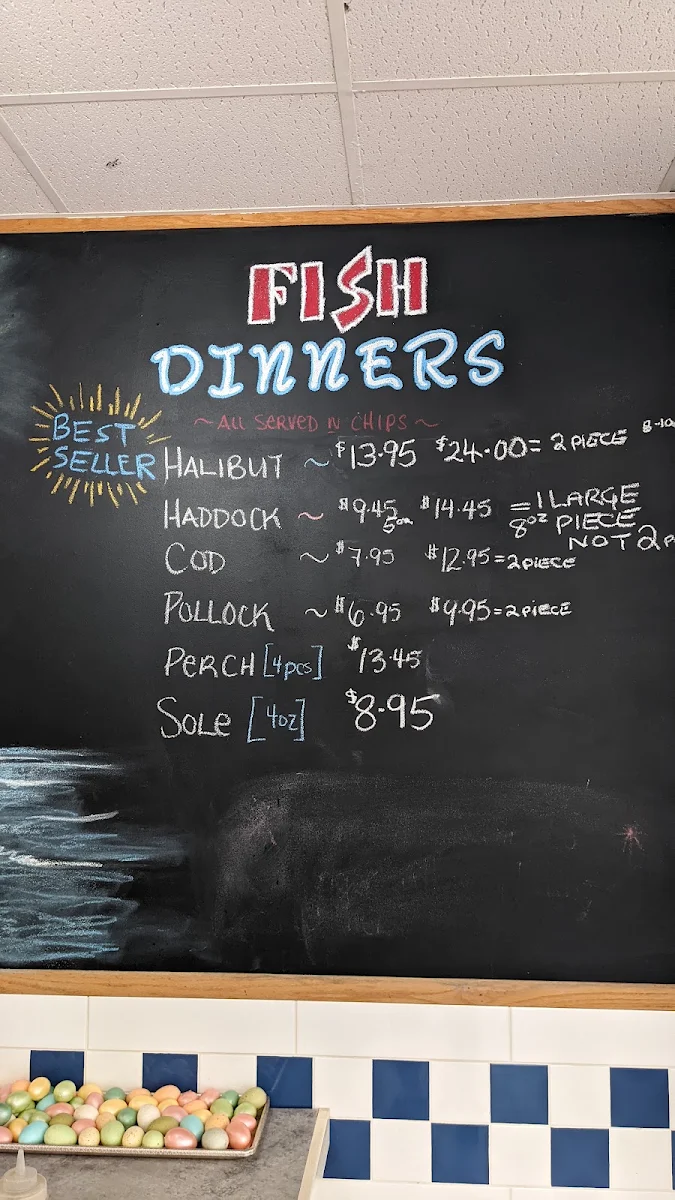 FISH
DINNERS
~ ALL SERVED N CHIPS ~
BEST
SELLER
HALIBUT ~ $13.95 $24.00 = 2 PIECE 8-10
HADDOCK ~ $9.45 5oz $14.45 = 1 LARGE
8oz PIECE
NOT 2 P
COD ~ $7.95 $12.95 = 2 PIECE
POLLOCK ~ $6.95 $9.95 = 2 PIECE
PERCH [4pcs] $13.45
SOLE [4oz] $8.95